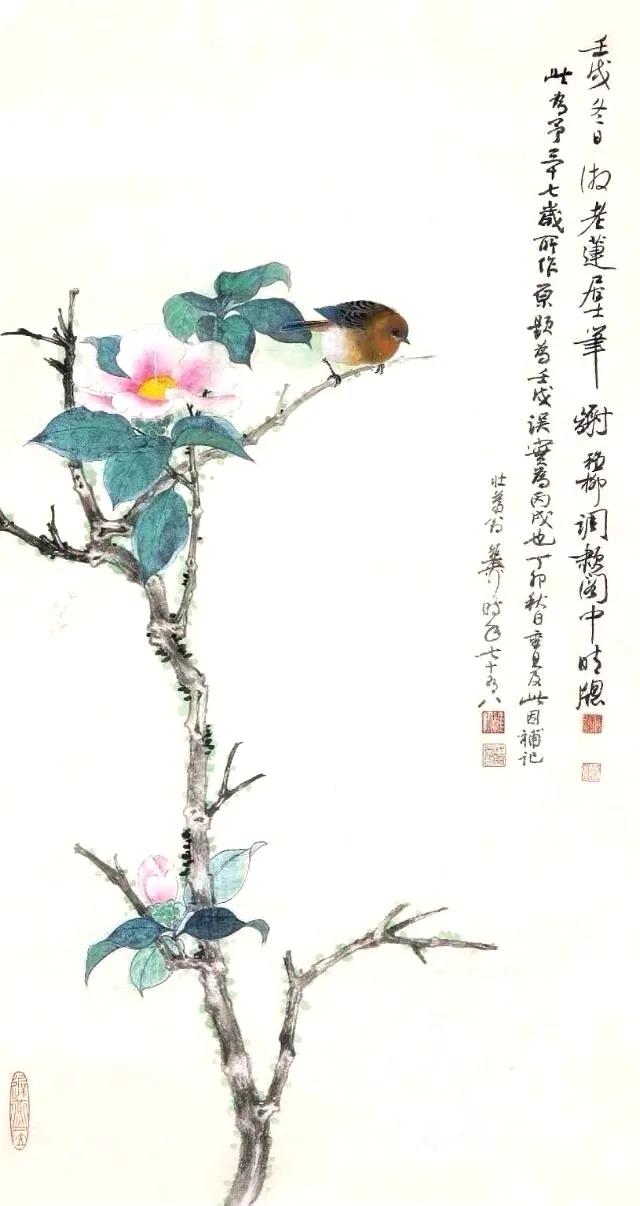 壬戌冬日仿老蓮居士筆謝稚柳調嶔閣中晴牕
此為予三十七歲所作原題為壬戌誤實為丙戌也丁卯秋日重見及此因補記
壯暮翁稚柳時年七十有八